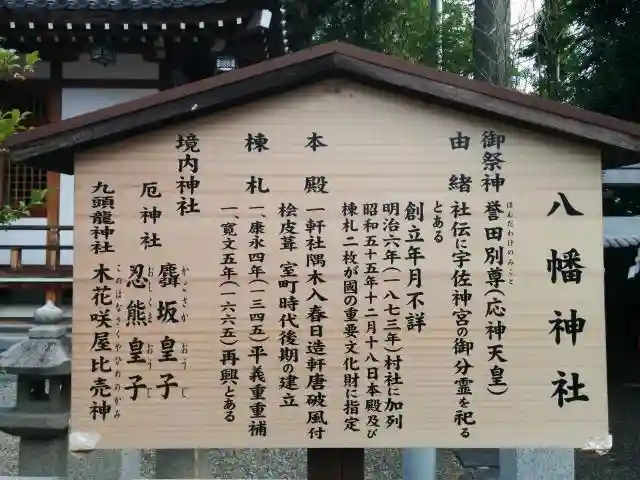 八幡神社
御祭神 誉田別尊(応神天皇)
ほんだわけのみこと
由緒 社伝に宇佐神宮の御分霊を祀る
とある
創立年月不詳
明治六年(一八七三年)村社に加列
昭和五十五年十二月十八日本殿及び
棟札二枚が國の重要文化財に指定
本殿 一軒社隅木入春日造軒唐破風付
桧皮葺 室町時代後期の建立
棟札 一、康永四年(一三四五)平義重重補
一、寛文五年(一六六五)再興とある
境内神社
厄神社 麛坂皇子
かごさかおうじ
忍熊皇子
おしくまおうじ
九頭龍神社 木花咲屋比売神
このはなさくやひめのかみ